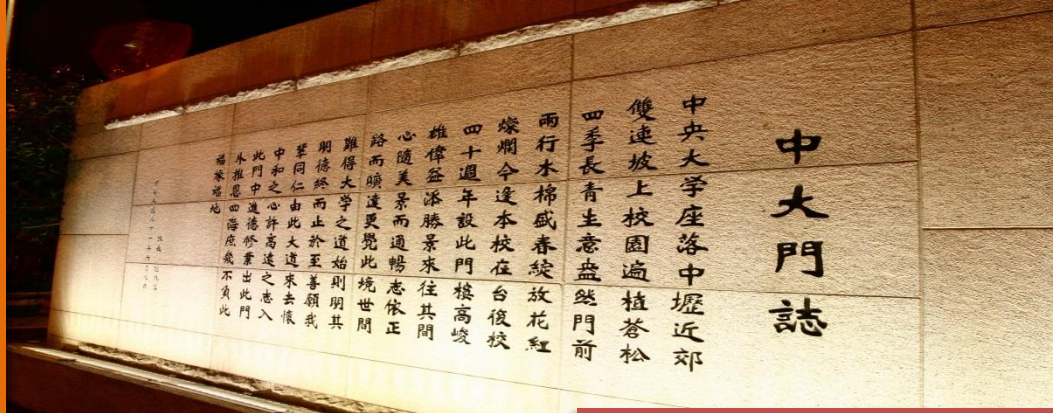 中大門誌
中央大学座落中壢近郊
雙連坡上校園遍植蒼松
四季長青生意盎然門前
兩行木棉盛春綻放花紅
燦爛今逢本校在台復校
四十週年設此門樓高峻
雄偉益添勝景來往其間
心隨美景而通暢志依正
路而曠達更覺此境世間
難得大学之道始則明其
明德終而止於至善願我
輩同仁由此大道來去懷
中和之心許高遠之志入
此門中進德修業出此門
外推恩四海庶幾不負此
福緣福地